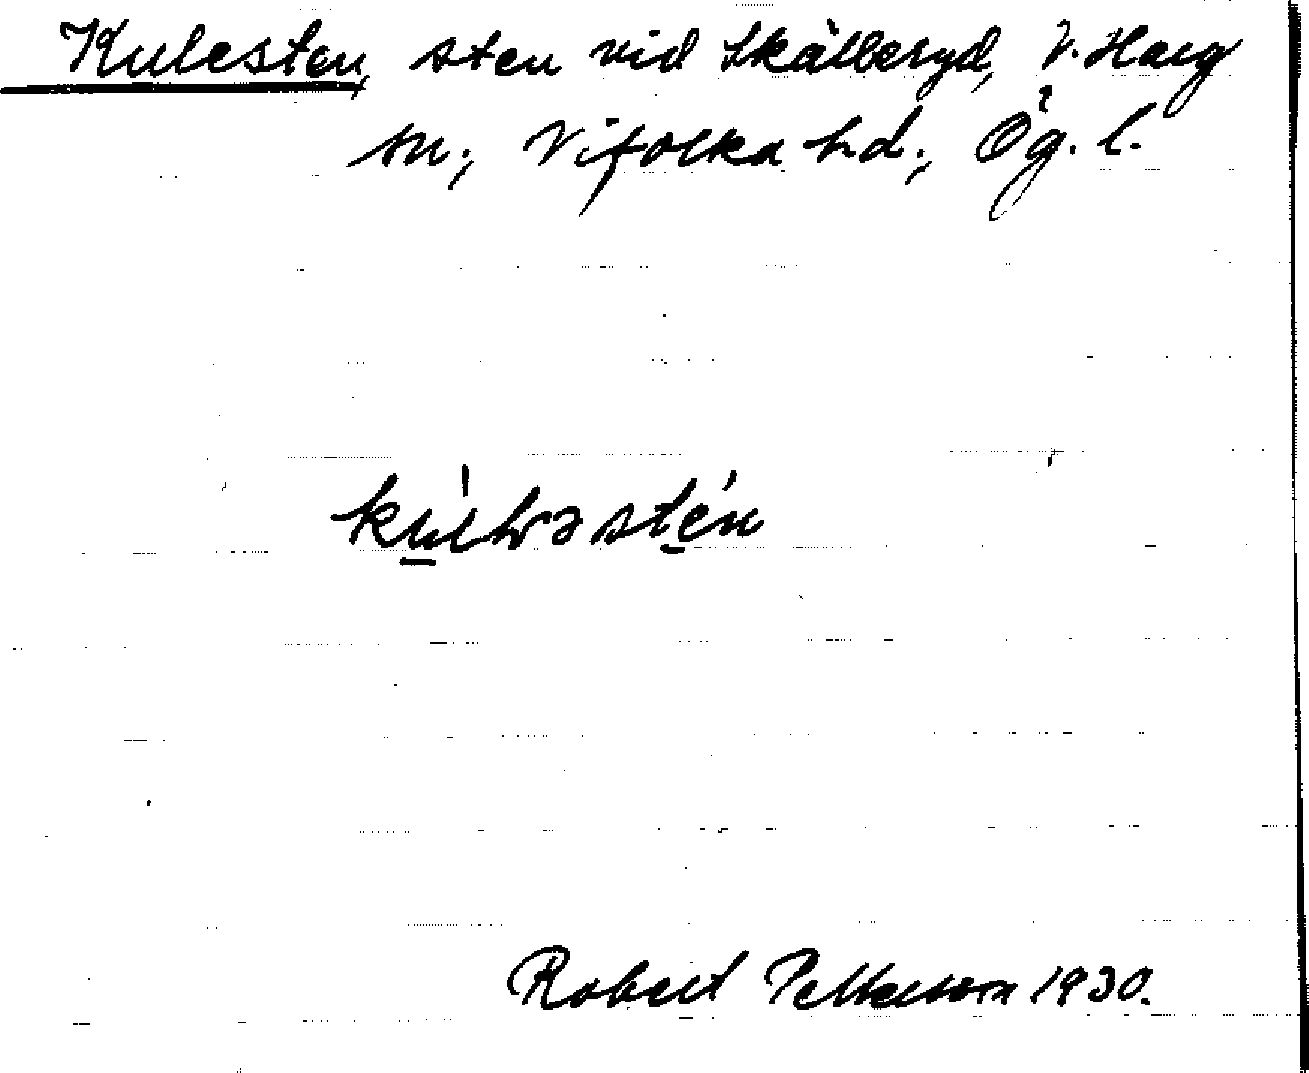 Kulesten, sten vid Skälberyd, V. Harg
sn., Vifolka hd., Ög. l.
Robert Pettersson 1930.